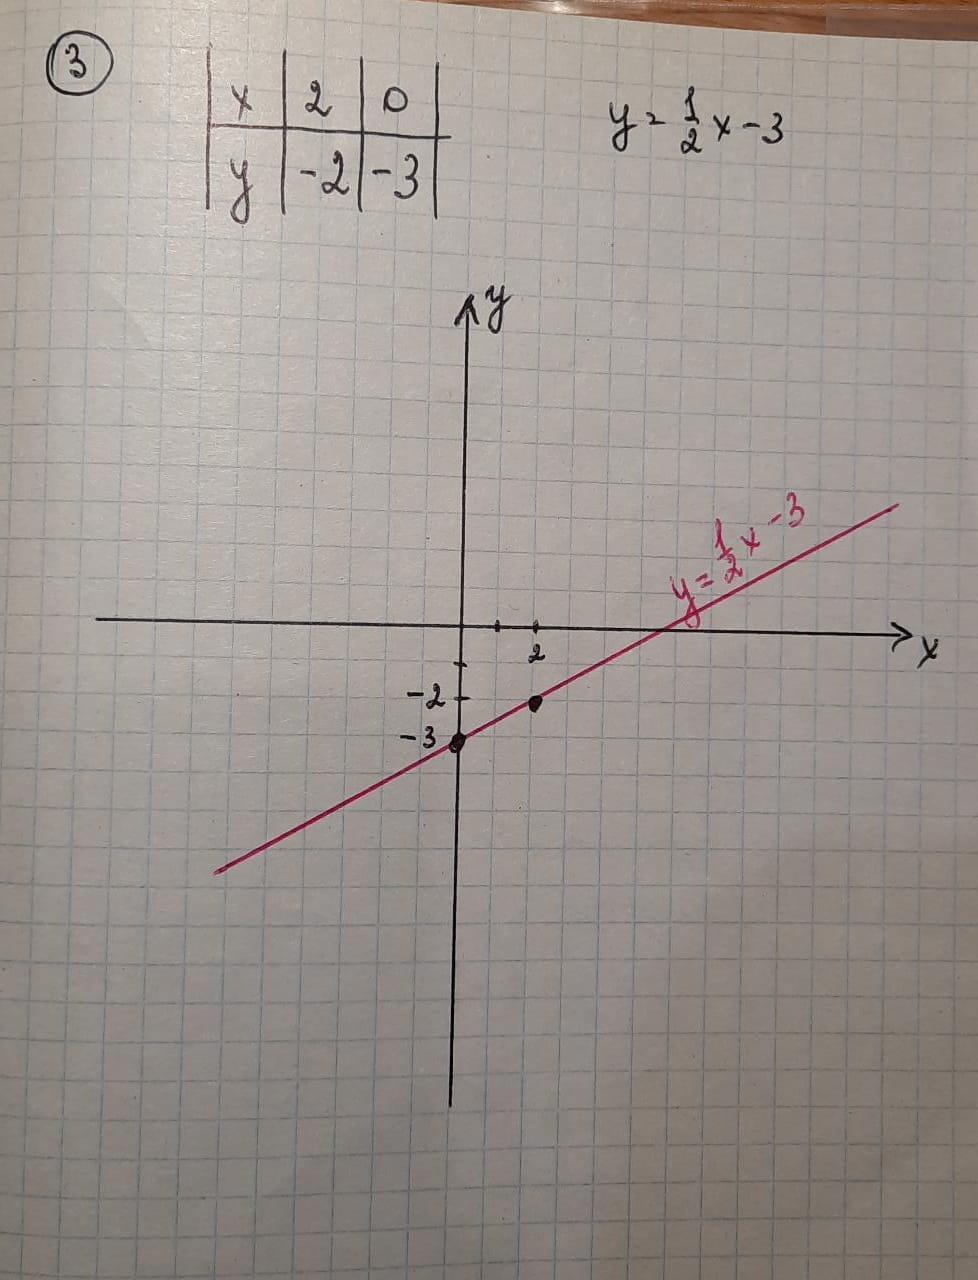 3
x 2 0
y -2 -3
y = 1/2 x - 3
y
y = 1/2 x - 3
x
2
-2
-3